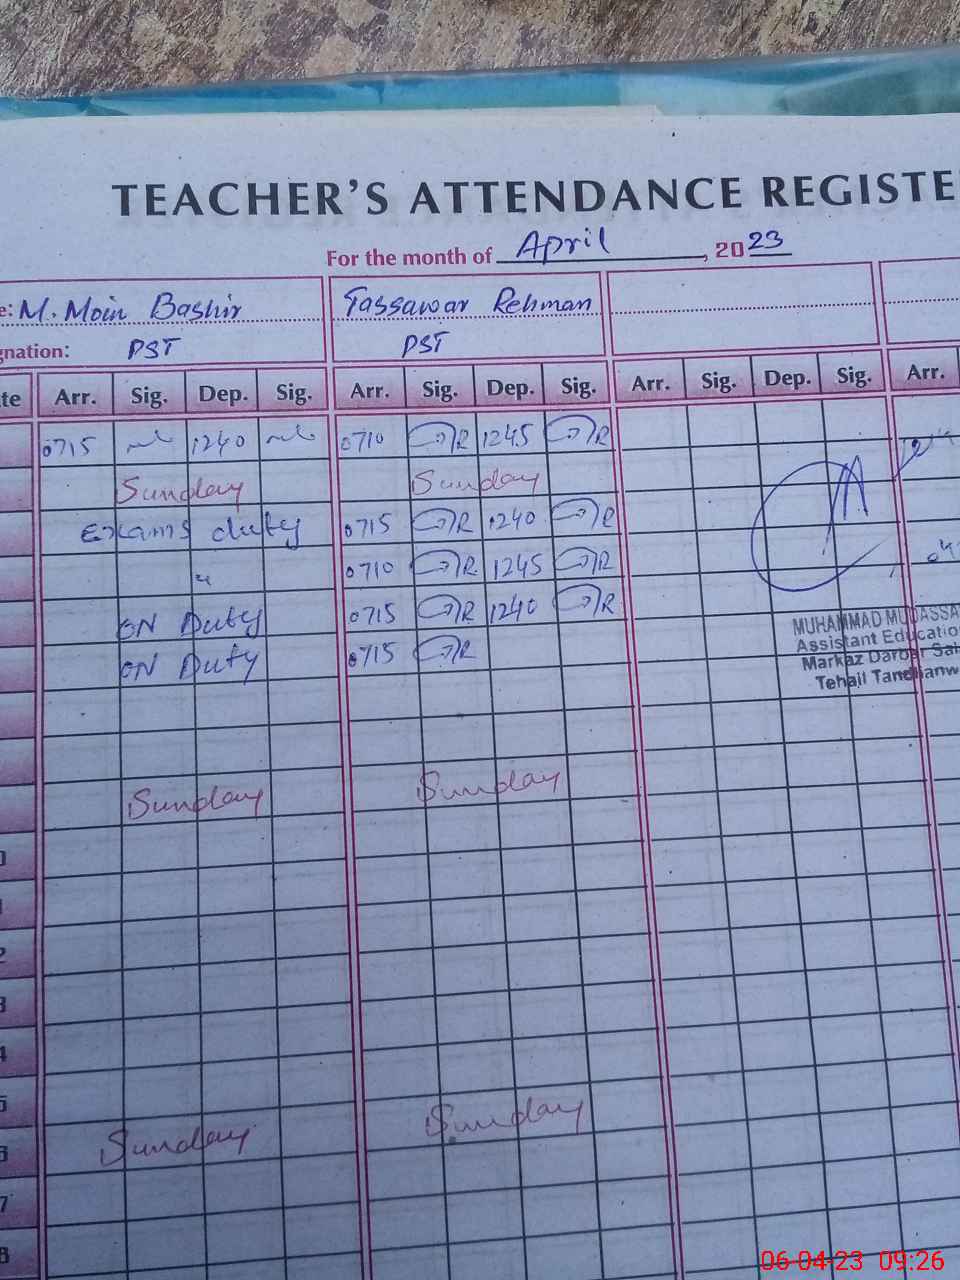 TEACHER'S ATTENDANCE REGISTE
For the month of April, 2023
e: M. Moin Bashir Tassawar Rehman
gnation: PST PST
te Arr. Sig. Dep. Sig. Arr. Sig. Dep. Sig. Arr. Sig. Dep. Sig. Arr.
0715 1240 0710 1245
Sunday Sunday
Exams duty 0715 1240
" 0710 1245
ON Duty 0715 1240
ON Duty 0715
MUHAMMAD MUDASSA
Assistant Educatio
Markaz Darbar Sal
Tehail Tandlianw
Sunday Sunday
0
1
2
3
4
5
Sunday Sunday
6
7
8
06-04-23 09:26